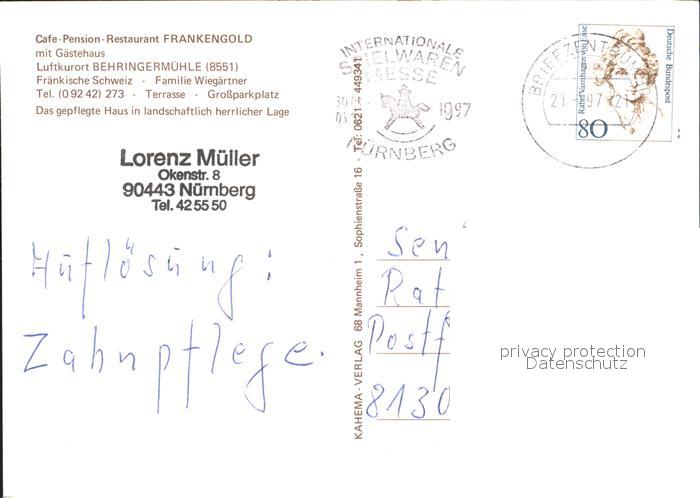 Cafe-Pension-Restaurant FRANKENGOLD
mit Gästehaus
Luftkurort BEHRINGERMÜHLE (8551)
Fränkische Schweiz - Familie Wiegärtner
Tel. (0 92 42) 273 - Terrasse - Großparkplatz
Das gepflegte Haus in landschaftlich herrlicher Lage
Lorenz Müller
Okenstr. 8
90443 Nürnberg
Tel. 42 55 50
Auflösung:
Zahnpflege.
KAHEMA-VERLAG 68 Mannheim 1, Sophienstraße 16 - Tel: 0621 - 449341
INTERNATIONALE
SPIELWAREN
MESSE
1997
NÜRNBERG
BRIEFZENTRUM
97-21
Rahel Varnhagen von Ense
Deutsche Bundespost
80
Sen
Rat
Postf
8130
privacy protection
Datenschutz